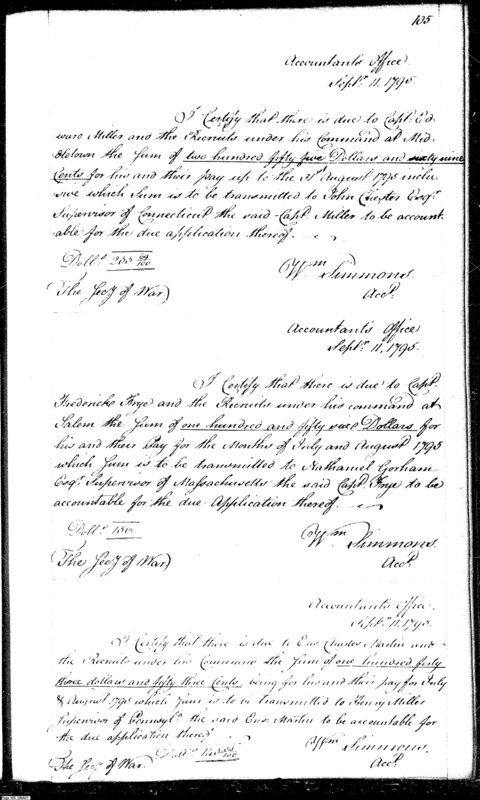 105
Accountant's Office
Sept.r 11. 1795.
I Certify that there is due to Capt. Ed
ward Miller and the Recruits under his Command at Mid
dletown the Sum of two hundred fifty five Dollars and sixty nine
Cents for his and their pay up to the 31st August 1795 inclu
sive which Sum is to be transmitted to John Chester Esqr.
Supervisor of Connecticut the said Capt. Miller to be account
able for the due application thereof.
Dolls. 255 69/100
Wm Simmons.
Acct.
The Secy of War
Accountant's Office
Sept.r 11, 1795.
I Certify that there is due to Capt.
Frederick Frye and the Recruits under his command at
Salem the Sum of one hundred and fifty six Dollars for
his and their Pay for the Months of July and August 1795
which Sum is to be transmitted to Nathaniel Gorham
Esqr. Supervisor of Massachusetts the said Capt. Frye to be
accountable for the due Application thereof.
Dolls. 156
Wm Simmons.
Acct.
The Secy of War
Accountant's Office.
Sept.r 11. 1795.
I Certify that there is due to Ens. Martin and
the Recruits under his Command the Sum of one hundred forty
three dollars and fifty three Cents, being for his and their pay for July
& August 1795 which Sum is to be transmitted to Henry Miller
Supervisor of Pennsyla. the said Ens. Martin to be accountable for
the due application thereof
Dolls. 143 53/100
Wm Simmons.
Acct.
The Secy of War.